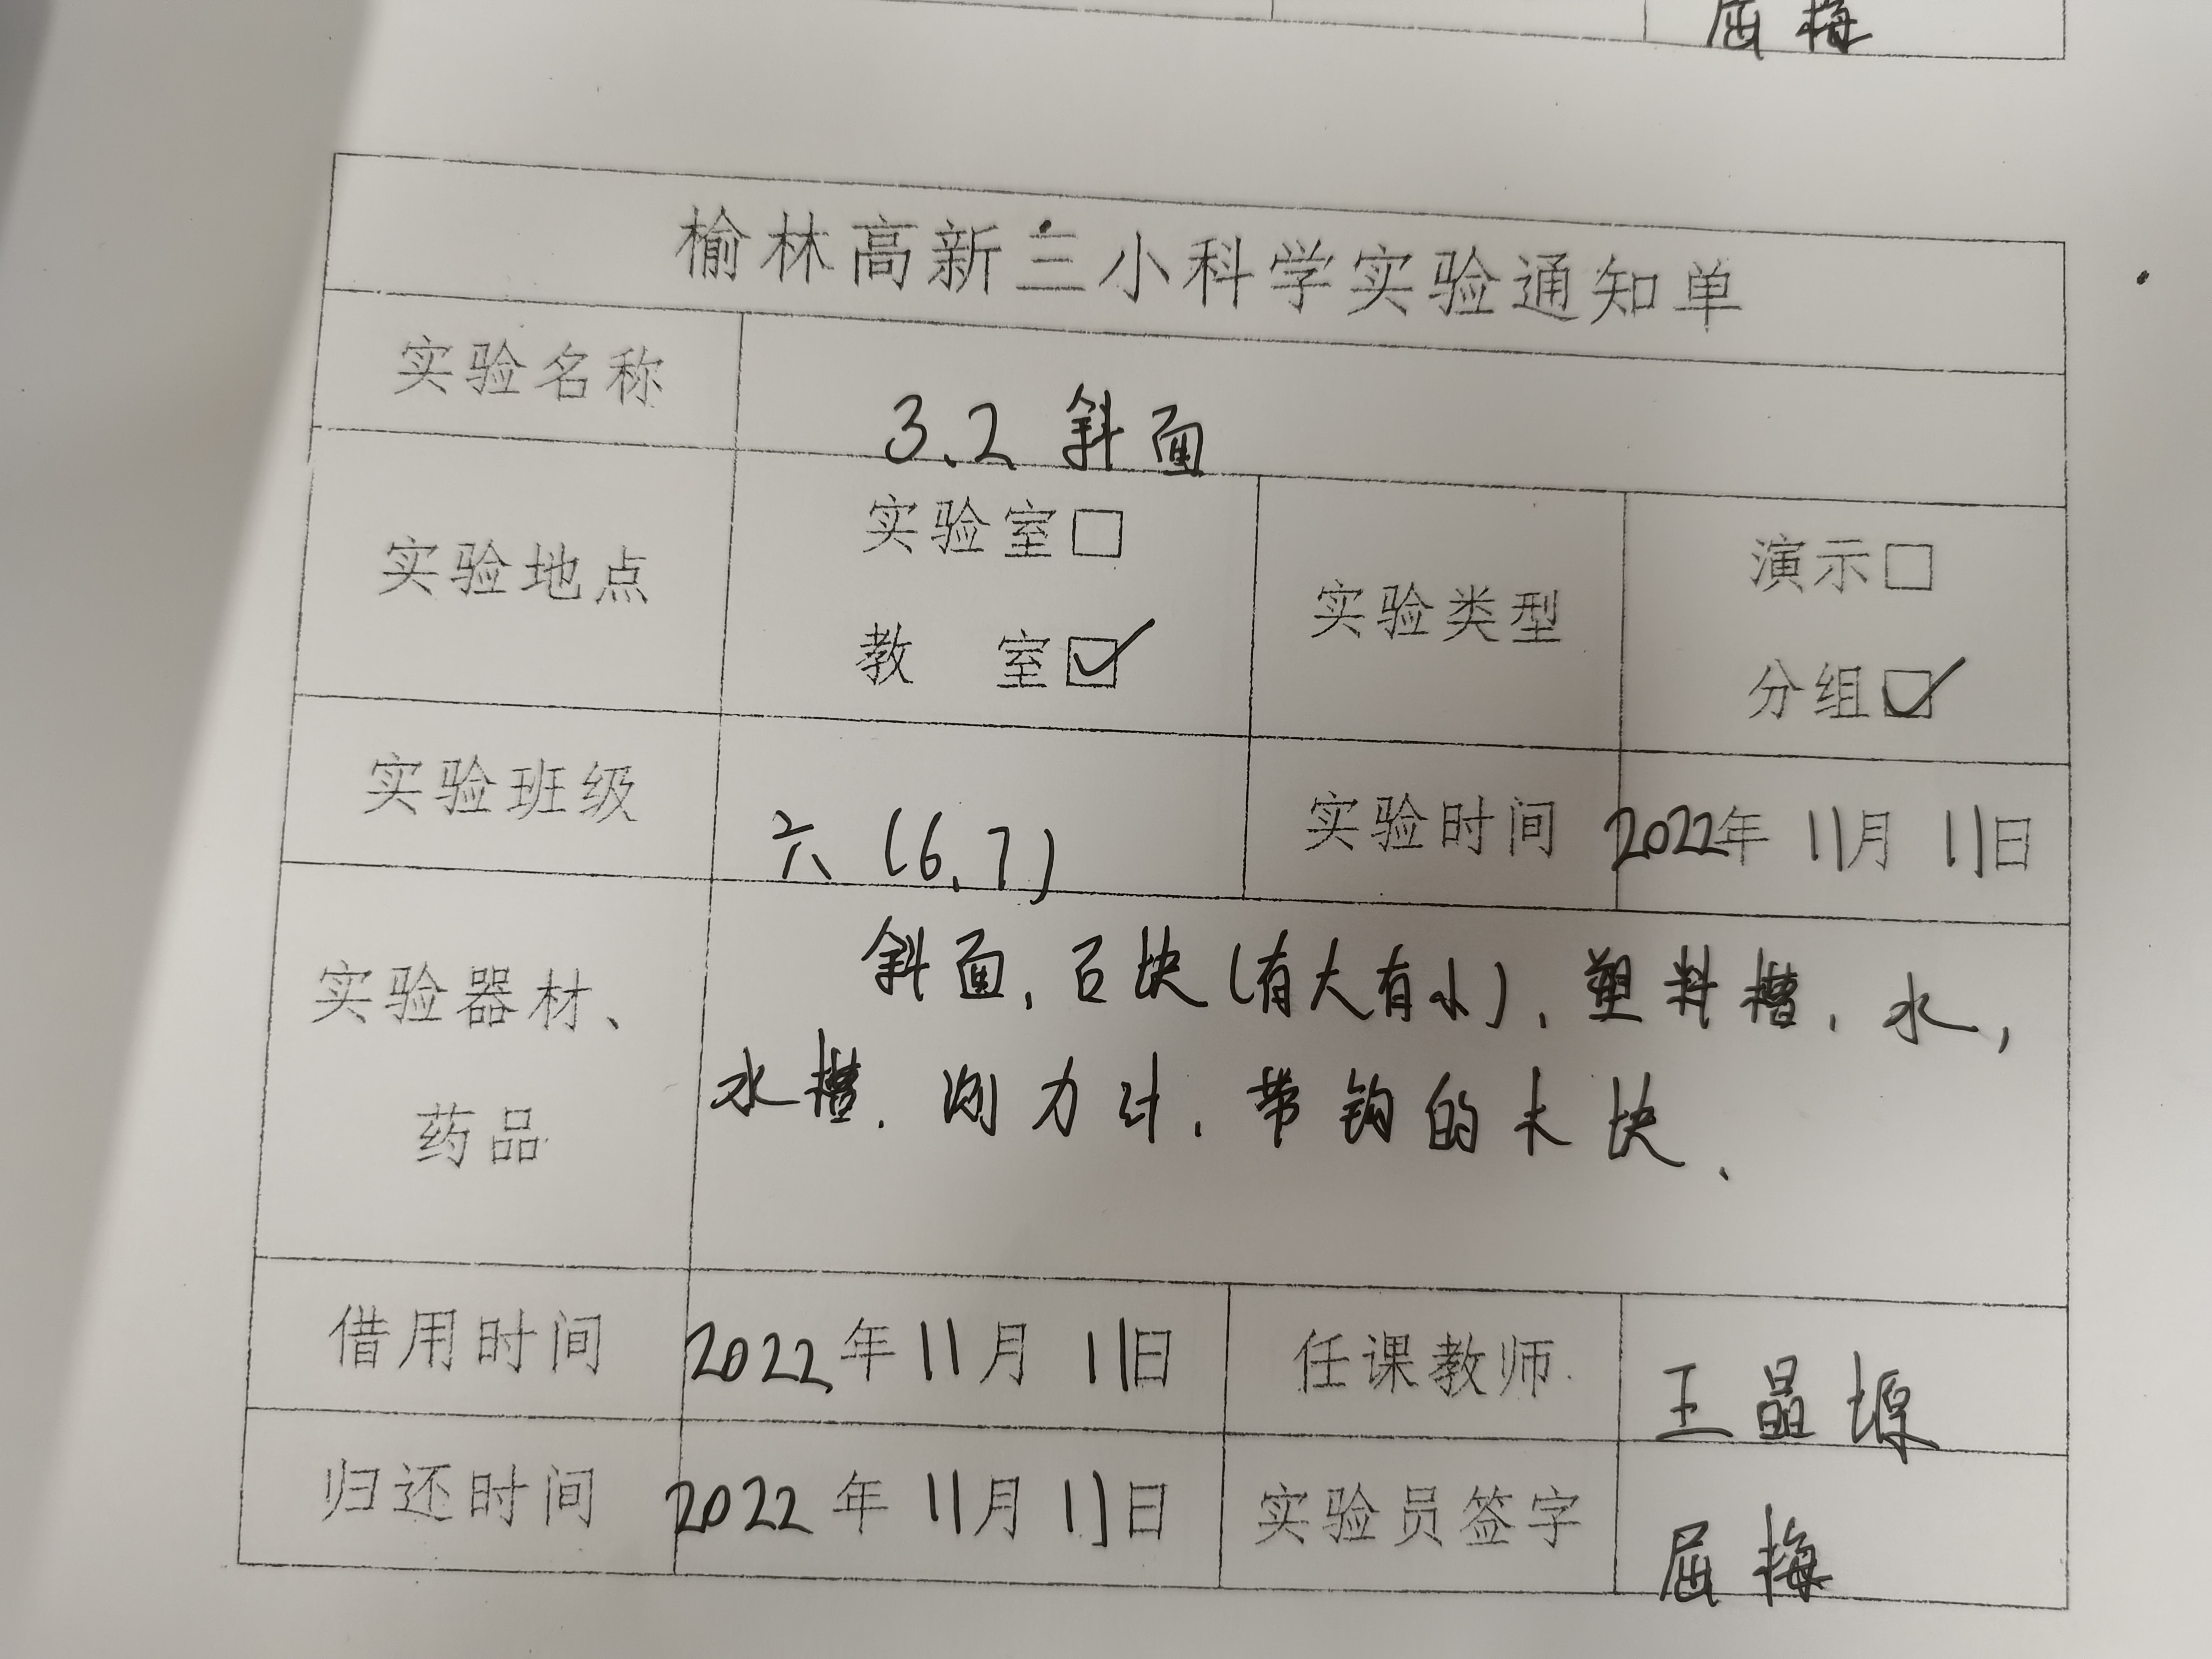 屈梅
榆林高新三小科学实验通知单
实验名称 3.2 斜面
实验地点 实验室□ 教 室☑ 实验类型 演示□ 分组☑
实验班级 六(6、7) 实验时间 2022年 11月 11日
实验器材、药品
斜面、石块(有大有小)、塑料槽、水,
水槽、测力计、带钩的木块、
借用时间 2022年 11月 11日 任课教师 王晶
归还时间 2022年 11月 11日 实验员签字 屈梅